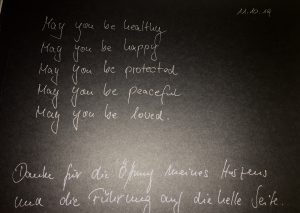 11.10.19
May you be healthy
May you be happy
May you be protected
May you be peaceful
May you be loved.
Danke für die Öffnung meines Herzens
und die Führung auf die helle Seite.